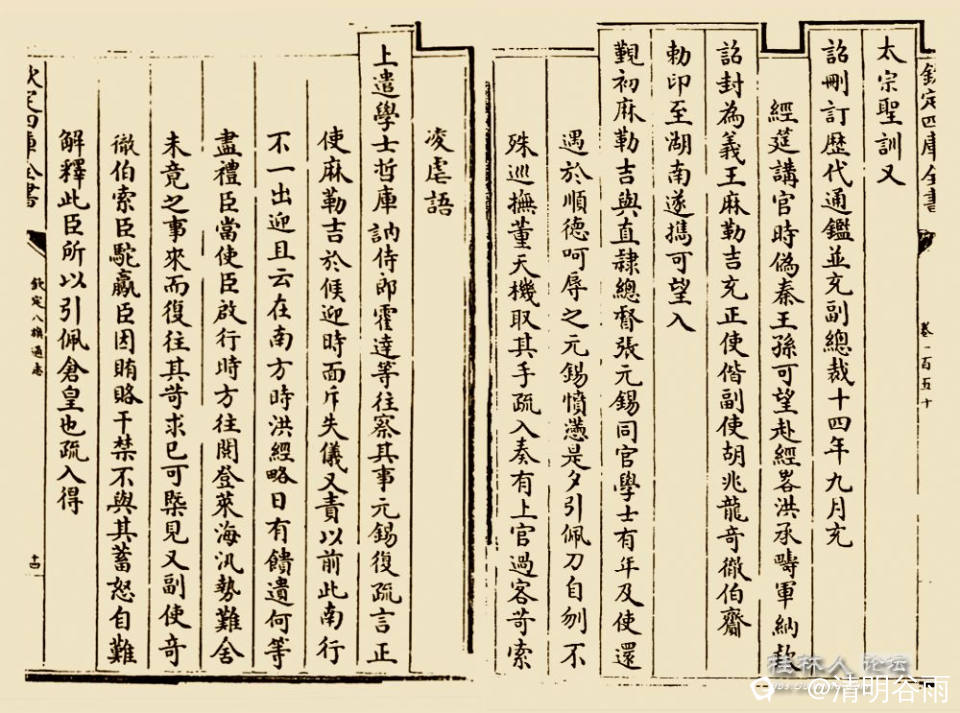 欽定四庫全書
太宗聖訓又
詔刪訂歷代通鑑並充副總裁十四年九月充
經筵講官時偽秦王孫可望赴經畧洪承疇軍納款
詔封為義王麻勒吉充正使偕副使胡兆龍奇徹伯齎
勅印至湖南遂攜可望入
覲初麻勒吉與直隷總督張元錫同官學士有年及使還
遇於順德呵辱之元錫憤懣是夕引佩刀自刎不
殊巡撫董天機取其手疏入奏有上官過客苛索
凌虐語
上遣學士哲庫訥侍郎霍達等往察其事元錫復疏言正
使麻勒吉於候迎時面斥失儀又責以前此南行
不一出迎且云在南方時洪經略日有饋遺何等
盡禮臣當使臣啟行時方往閱登萊海汛勢難舍
未竟之事來而復往其苛求已可槩見又副使奇
徹伯索臣駝臝臣因賄賂干禁不與其蓄怒自難
解釋此臣所以引佩倉皇也疏入得
欽定四庫全書
欽定八旗通志
卷一百五十
十四
桂林人论坛
@清明谷雨